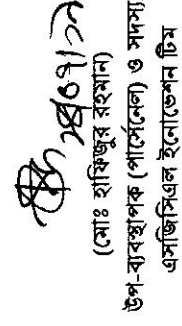 ২৪/০৭/১৯
(মোঃ হাফিজুর রহমান)
উপ-ব্যবস্থাপক (পার্সোনেল) ও সদস্য
এসজিসিএল ইনোভেশন টিম